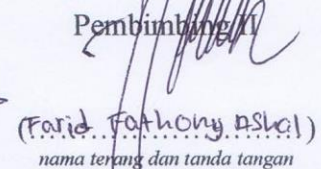 Pembimbing II
(Farid Fathony Ashal)
nama terang dan tanda tangan